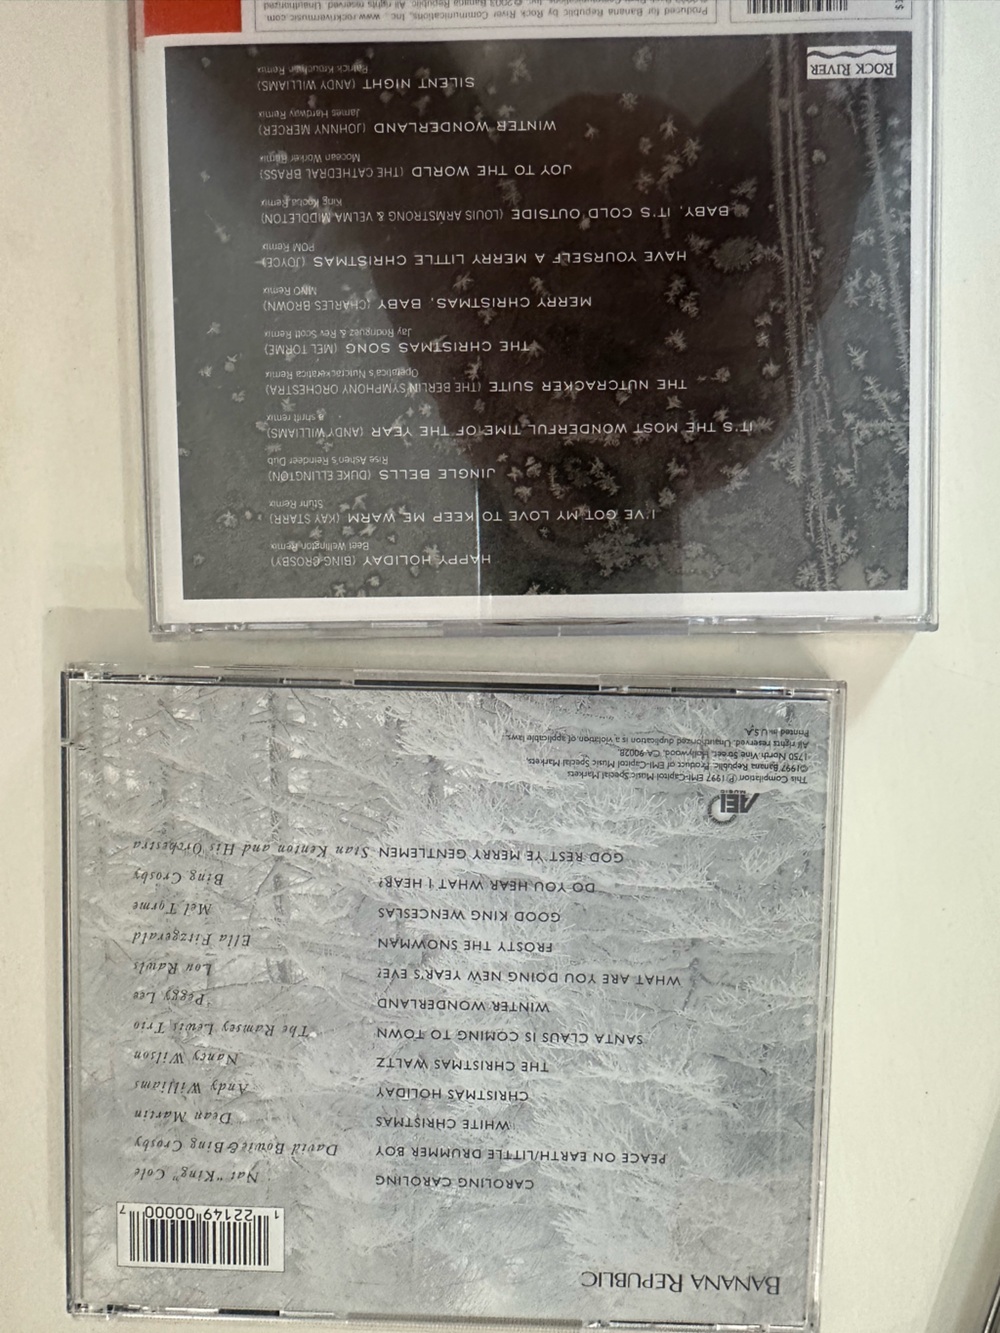 BANANA REPUBLIC
1 22149 00000 7
CAROLING CAROLING Nat "King" Cole
PEACE ON EARTH/LITTLE DRUMMER BOY David Bowie & Bing Crosby
WHITE CHRISTMAS Dean Martin
CHRISTMAS HOLIDAY Andy Williams
THE CHRISTMAS WALTZ Nancy Wilson
SANTA CLAUS IS COMING TO TOWN The Ramsey Lewis Trio
WINTER WONDERLAND Peggy Lee
WHAT ARE YOU DOING NEW YEAR'S EVE? Lou Rawls
FROSTY THE SNOWMAN Ella Fitzgerald
GOOD KING WENCESLAS Mel Torme
DO YOU HEAR WHAT I HEAR? Bing Crosby
GOD REST YE MERRY GENTLEMEN Stan Kenton and His Orchestra
AEI
MUSIC
This Compilation ℗ 1997 EMI-Capitol Music Special Markets
©1997 Banana Republic Product of EMI-Capitol Music Special Markets,
1750 North Vine Street, Hollywood, CA 90028.
All rights reserved. Unauthorized duplication is a violation of applicable laws.
Printed in U.S.A.
HAPPY HOLIDAY (BING CROSBY)
Beef Wellington Remix
I'VE GOT MY LOVE TO KEEP ME WARM (KAY STARR)
Stuhr Remix
JINGLE BELLS (DUKE ELLINGTON)
Rise Ashen's Reindeer Dub
IT'S THE MOST WONDERFUL TIME OF THE YEAR (ANDY WILLIAMS)
shrift remix
THE NUTCRACKER SUITE (THE BERLIN SYMPHONY ORCHESTRA)
Operatica's Nutcrackeratica Remix
THE CHRISTMAS SONG (MEL TORME)
Jay Rodriguez & Rev Scott Remix
MERRY CHRISTMAS, BABY (CHARLES BROWN)
MNO Remix
HAVE YOURSELF A MERRY LITTLE CHRISTMAS (JOYCE)
POM Remix
BABY, IT'S COLD OUTSIDE (LOUIS ARMSTRONG & VELMA MIDDLETON)
King Kooba Remix
JOY TO THE WORLD (THE CATHEDRAL BRASS)
Mocean Worker Remix
WINTER WONDERLAND (JOHNNY MERCER)
James Hardway Remix
SILENT NIGHT (ANDY WILLIAMS)
Remix
ROCK RIVER
Produced for Banana Republic by Rock River Communications, Inc., www.rockrivermusic.com
Inc. © 2003 Banana Republic. All rights reserved. Unauthorized